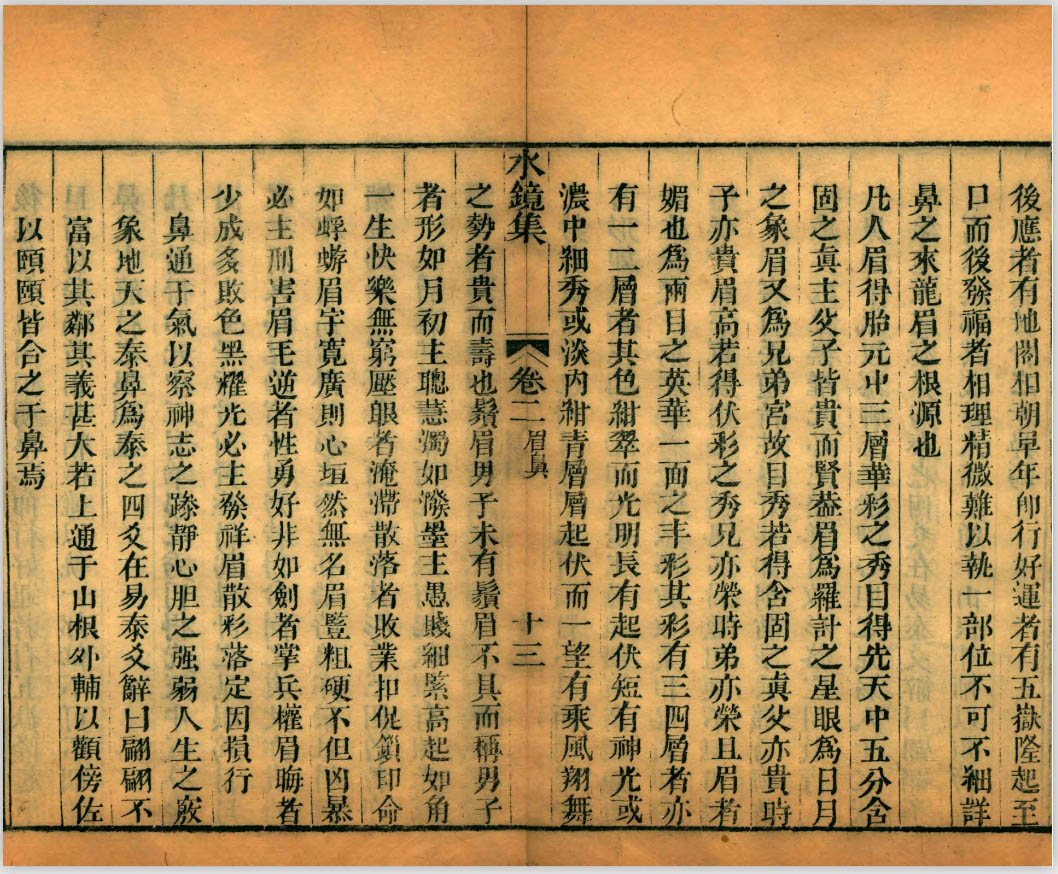 後應者有地閣相朝早年卽行好運者有五嶽隆起至
口而後發福者相理精微難以執一部位不可不細詳
鼻之來龍眉之根源也
凡人眉得胎元中三層華彩之秀目得先天中五分含
固之眞主父子皆貴而賢葢眉爲羅計之星眼爲日月
之象眉又爲兄弟宮故目秀若得含固之眞父亦貴時
子亦貴眉高若得伏彩之秀兄亦榮時弟亦榮且眉者
媚也爲兩目之英華一面之丰彩其彩有三四層者亦
有一二層者其色紺翠而光明長有起伏短有神光或
濃中細秀或淡內紺青層層起伏而一望有乘風翔舞
水鏡集
卷二 眉鼻
十三
之勢者貴而壽也鬚眉男子未有鬚眉不具而稱男子
者形如月初主聰慧濁如潑墨主愚賤細緊高起如角
一生快樂無窮壓眼者淹滯散落者敗業扣促鎖印命
如蜉蝣眉宇寬廣則心垣然無名眉豎粗硬不但凶暴
必主刑害眉毛逆者性勇好非如劍者掌兵權眉晦者
少成多敗色黑耀光必主發祥眉散彩落定因損行
鼻通于氣以察神志之躁靜心胆之强弱人生之竅
象地天之泰鼻爲泰之四爻在易泰爻辭曰翩翩不
富以其鄰其義甚大若上通于山根外輔以顴傍佐
以頤頤皆合之于鼻焉